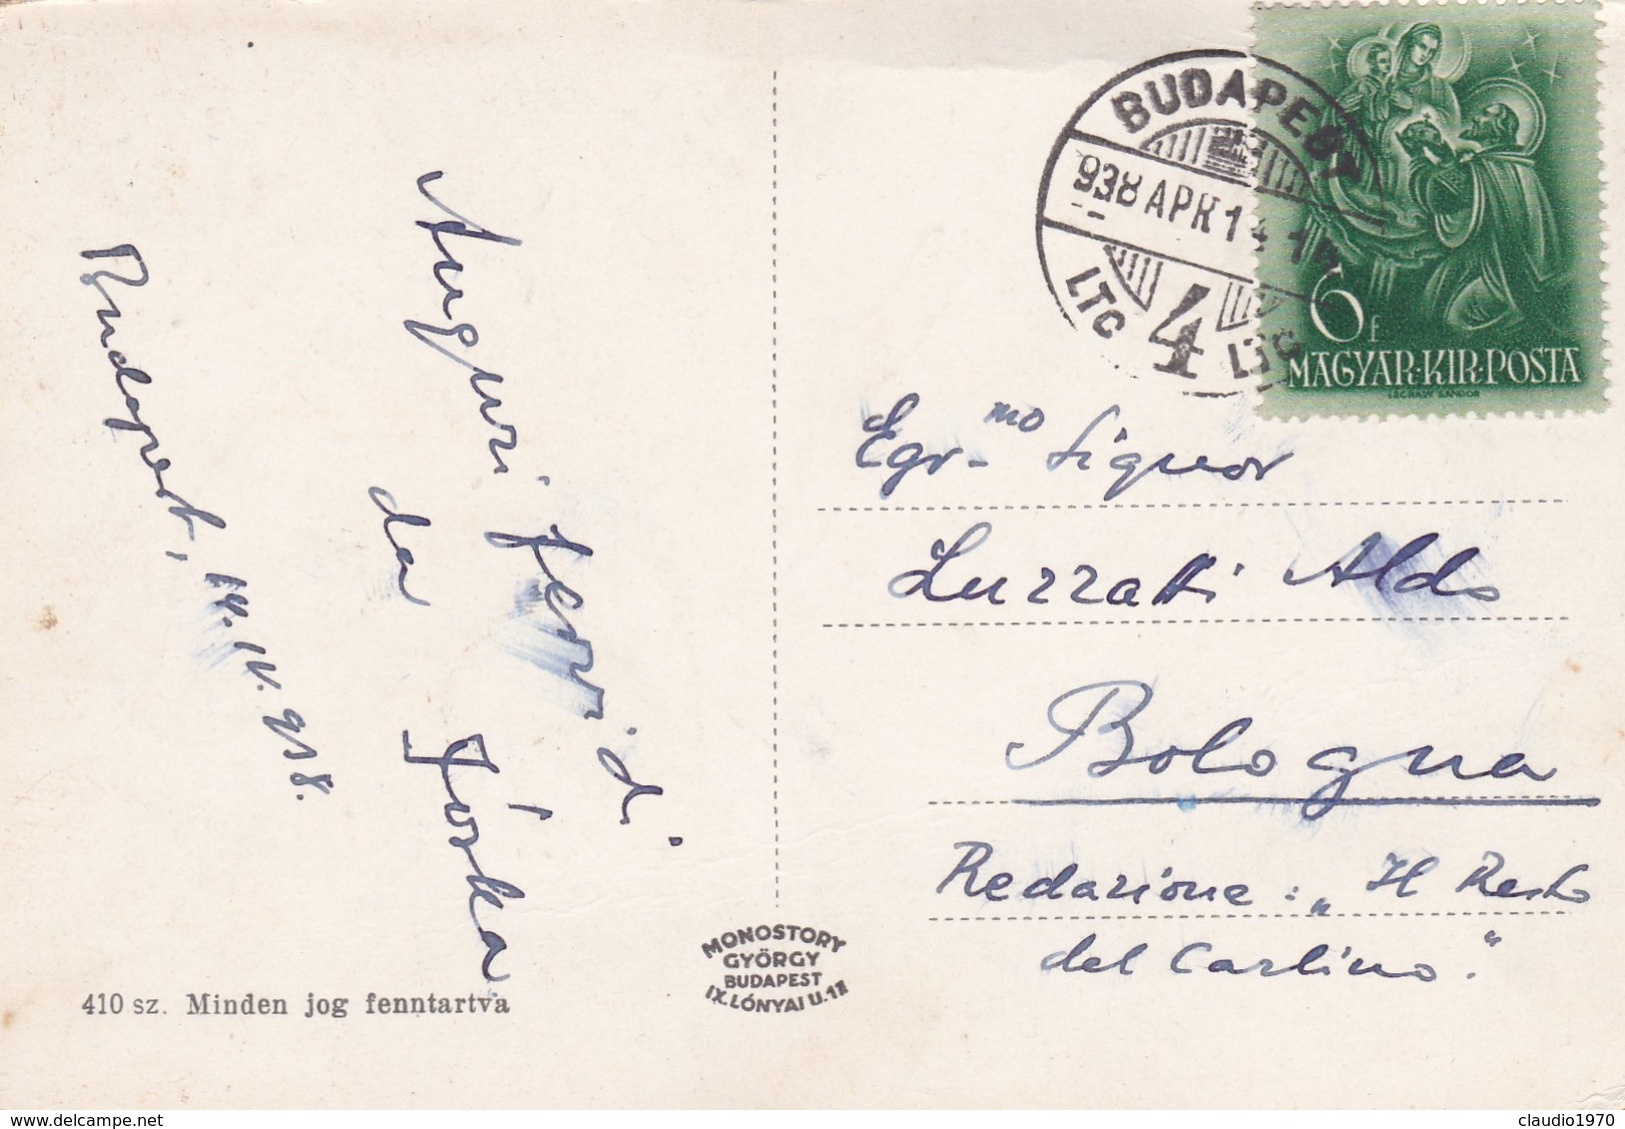 Budapest, 14. IV. 938.
Auguri fervidi
da Jóska
410 sz. Minden jog fenntartva
MONOSTORY
GYÖRGY
BUDAPEST
IX. LÓNYAI U.
BUDAPEST
938 APR 14
LTC 4 LTC
6f
MAGYAR·KIR·POSTA
LÉGRÁDY SÁNDOR
Egr-mo Signor
Luzzatti Aldo
Bologna
Redazione: „Il Resto
del Carlino."
www.delcampe.net
claudio1970